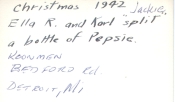 Christmas 1942 "Jackie,
Ella R. and Karl "split
a bottle of Pepsie.
KOONMEN
BEDFORD Rd
DETROIT, MI